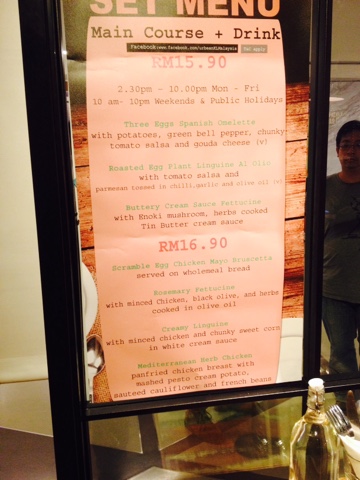 SET MENU
Main Course + Drink
Facebook:www.facebook.com/urbanedimalaysia T&C apply
RM15.90
2.30pm - 10.00pm Mon - Fri
10 am- 10pm Weekends & Public Holidays
Three Eggz Spanish Omelette
with potatoes, green bell pepper, chunky
tomato salsa and gouda cheese (v)
Roasted Egg Plant Linguine Al Olio
with tomato salsa and
parmesan tossed in chilli,garlic and olive oil (v)
Buttery Cream Sauce Fettucine
with Enoki mushroom, herbs cooked
Tin Butter cream sauce
RM16.90
Scramble Egg Chicken Mayo Bruscetta
served on wholemeal bread
Rosemary Fettucine
with minced Chicken, black olive, and herbs
cooked in olive oil
Creamy Linguine
with minced chicken and chunky sweet corn
in white cream sauce
Mediterranean Herb Chicken
panfried chicken breast with
mashed pesto cream potato,
sauteed cauliflower and french beans